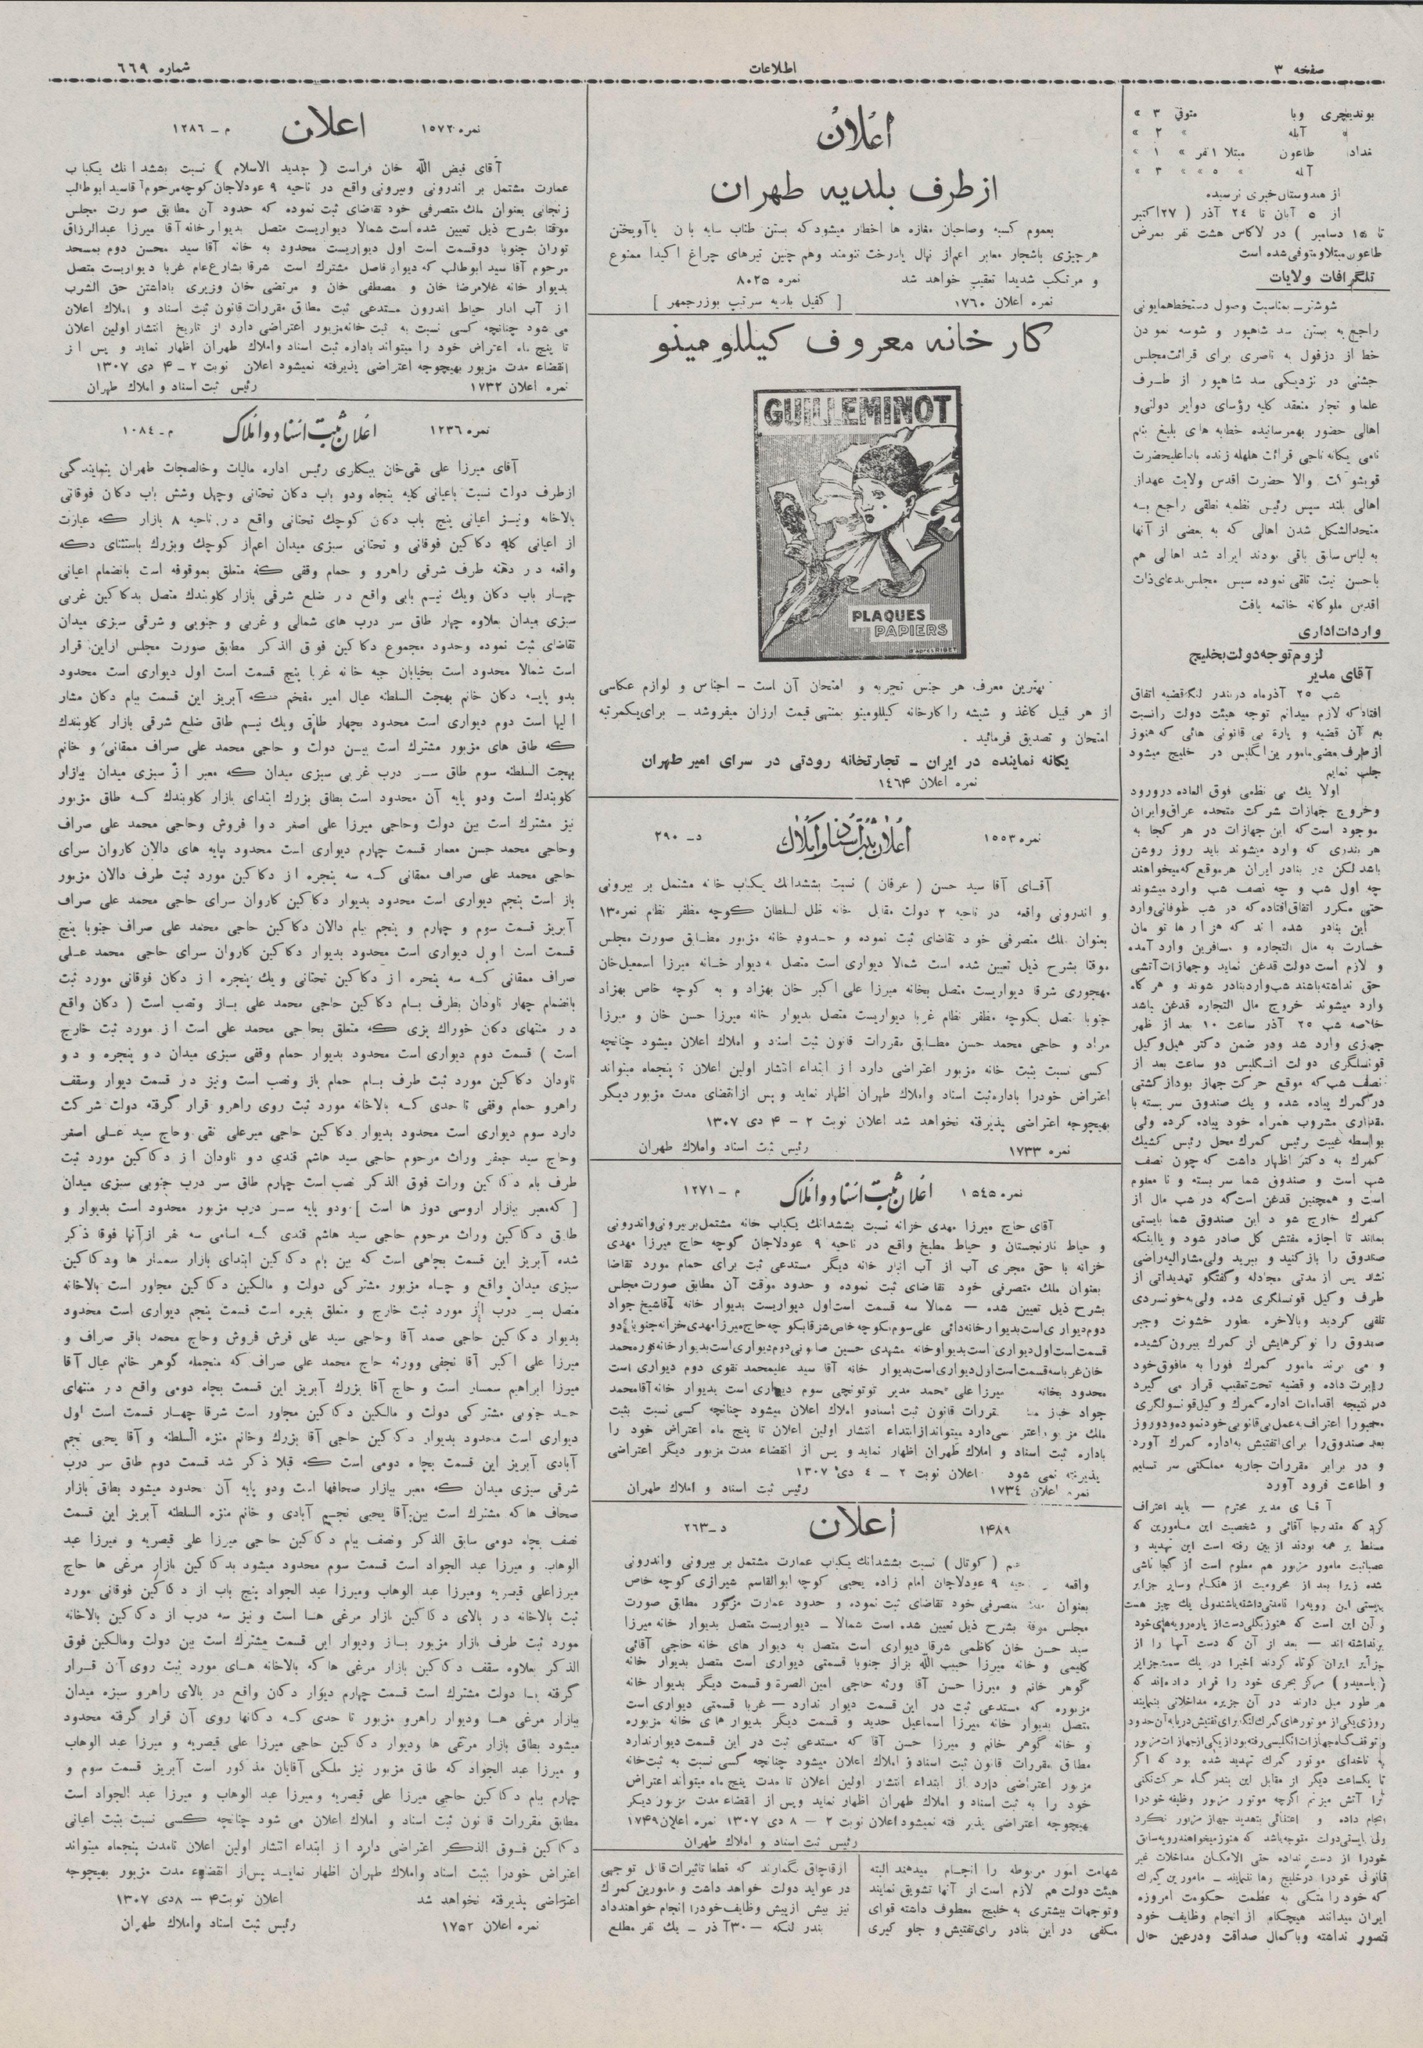 صفحه ۳
اطلاعات
شماره ۶۶۹
بوندیچری وبا متوفی ۳ »
» آبله » ۲ »
طاعون مبتلا ۱ نفر » ۱ »
آبله » ۵ » » ۳ »
از هندوستان خبری نرسیده
از ۵ آبان تا ۲۴ آذر ( ۲۷ اکتبر
تا ۱۵ دسامبر ) در لاکاس هشت نفر بمرض
طاعون مبتلا و متوفی شده است
تلگرافات ولایات
شوشتر ــ بمناسبت وصول دستخط همایونی
راجع به بستن سد شاهپور و شوسه نمودن
خط از دزفول به ناصری برای قرائت مجلس
جشنی در نزدیکی سد شاهپور از طرف
علما و تجار منعقد کلیه رؤسای دوایر دولتی و
اهالی حضور بهمرسانیده خطابه های بلیغ بنام
نامی یگانه ناجی قرائت هلهله زنده باد اعلیحضرت
والا حضرت اقدس ولایت عهد از
اهالی بلند سپس رئیس نظمیه نطقی راجع به
متحدالشکل شدن اهالی که به بعضی از آنها
به لباس سابق باقی بودند ایراد شد اهالی هم
باحسن نیت تلقی نموده سپس مجلس بدعای ذات
اقدس ملوکانه خاتمه یافت
واردات اداری
لزوم توجه دولت بخلیج
آقای مدیر
شب ۲۵ آذرماه در بندر لنگه قضیه اتفاق
افتاد که لازم میدانم توجه هیئت دولت را نسبت
به آن قضیه و پاره بی قانونی هائی که هنوز
از طرف بعضی مامورین انگلیس در خلیج میشود
جلب نمایم
اولا یک بی نظمی فوق العاده در ورود
وخروج جهازات شرکت متحده عراق وایران
موجود است که این جهازات در هر کجا به
هر بندری که وارد میشوند باید روز روشن
باشد لکن در بنادر ایران هر موقع که میخواهند
چه اول شب و چه نصف شب وارد میشوند
حتی مکرر اتفاق افتاده که در شب طوفانی وارد
این بنادر شده اند که هزار ها تومان
خسارت به مال التجاره و مسافرین وارد آمده
و لازم است دولت قدغن نماید وجهازات آتشی
حق نداشته باشند شب وارد بنادر شوند و هر گاه
وارد میشوند خروج مال التجاره قدغن باشد
خلاصه شب ۲۵ آذر ساعت ۱۰ بعد از ظهر
جهازی وارد شد ودر ضمن دکتر هیل وکیل
قونسلگری دولت انگلیس دو ساعت بعد از
نصف شب که موقع حرکت جهاز بود از کشتی
در گمرک پیاده شده و یک صندوق سر بسته با
مقداری مشروب همراه خود پیاده کرده ولی
بواسطه غیبت رئیس گمرک محل رئیس کشیک
گمرک به دکتر اظهار داشت که چون نصف
شب است و صندوق شما سر بسته و نا معلوم
است و همچنین قدغن است که در شب مال از
گمرک خارج شود این صندوق شما بایستی
بماند تا اجازه مفتش کل صادر شود و یا اینکه
صندوق را باز کنید و ببرید ولی مشارالیه راضی
نشد پس از مدتی مجادله وگفتگو تهدیداتی از
طرف وکیل قونسلگری شده ولی به خونسردی
تلقی گردید وبالاخره بطور خشونت وجبر
صندوق را نوکرهایش از گمرک بیرون کشیده
و می برند مامور گمرک فورا به مافوق خود
راپرت داده و قضیه تحت تعقیب قرار می گیرد
در نتیجه اقدامات اداره گمرک و کیل قونسولگری
مجبورا اعتراف به عمل بی قانونی خود نموده و دو روز
بعد صندوق را برای تفتیش به اداره گمرک آورد
و در برابر مقررات جاریه مملکتی سر تسلیم
و اطاعت فرود آورد
آقای مدیر محترم ــ باید اعتراف
کرد که مقتدرجا آقائی و شخصیت این مامورین که
مسلط بر همه بودند از بین رفته است این تهدید و
عصبانیت مامور مزبور هم معلوم است از کجا ناشی
شده زیرا بعد از محرومیت از هنگام وسایر جزایر
بایستی این رویه را نداشته باشند ولی یک چیز هست
و آن این است که هنوز بکلی دست از پاره رویه های خود
برنداشته اند ــ بعد از آن که دست آنها را از
جزایر ایران کوتاه کردند اخیرا در یک سمت جزایر
(باسعیدو) مرکز بحری خود را قرار داده اند که
هر طور میل دارند در آن جزیره مداخلاتی بنمایند
روزی یکی از موتور های گمرک لنگه برای تفتیش دریا به آن حدود
و توقف گاه جهازات انگلیسی رفته بود از یکی از جهازات مزبور
به ناخدای موتور گمرک تهدید شده بود که اگر
تا یکساعت دیگر از مقابل این بندرگاه حرکت نکنی
ترا آتش میزنم اگرچه موتور مزبور وظیفه خود را
انجام داده و اعتنائی بتهدید جهاز مزبور نکرد
ولی بایستی دولت متوجه باشد که هنوز میخواهند رویه سابق
خود را از دست نداده حتی الامکان مداخلات غیر
قانونی خود را در خلیج رها ننمایند ــ مامورین گمرک
که خود را متکی به عظمت حکومت امروزه
ایران میدانند هیچگاه از انجام وظایف خود
قصور نداشته و با کمال صداقت و در عین حال
شهامت امور مربوطه را انجام میدهند البته
هیئت دولت هم لازم است از آنها تشویق نمایند
وتوجهات بیشتری به خلیج معطوف داشته قوای
مکفی در این بنادر برای تفتیش و جلو گیری
ازقاچاق بگمارند که قطعا تاثیرات قابل توجهی
در عواید دولت خواهد داشت و مامورین گمرک
نیز بیش از پیش وظایف خود را انجام خواهند داد
بندر لنگه ــ ۳۰ آذر ــ یک نفر مطلع
اعلان
از طرف بلدیه طهران
بعموم کسبه وصاحبان مغازه ها اخطار میشود که بستن طناب سایه بان یا آویختن
هر چیزی باشجار معابر اعم از نهال یا درخت ننموده وهم چنین تیرهای چراغ اکیدا ممنوع
و مرتکب شدیدا تعقیب خواهد شد نمره ۸۰۲۵
نمره اعلان ۱۷۶۰ [ کفیل بلدیه سرتیپ بوزرجمهر ]
کار خانه معروف کیللومینو
GUILLEMINOT
PLAQUES
PAPIERS
بهترین معرف هر جنس تجربه و امتحان آن است ــ اجناس و لوازم عکاسی
از هر قبیل کاغذ و شیشه را کارخانه کیللومینو بمنتهی قیمت ارزان میفروشد ــ برای یکمرتبه
امتحان و تصدیق فرمائید .
یگانه نماینده در ایران ــ تجارتخانه رودتی در سرای امیر طهران
نمره اعلان ۱۴۶۴
نمره ۱۵۵۳ اعلان ثبت اسناد و املاک د ــ ۲۹۰
آقای آقا سید حسن ( عرفان ) نسبت بششدانک یکباب خانه مشتمل بر بیرونی
و اندرونی واقعه در ناحیه ۲ دولت مقابل خانه ظل السلطان کوچه مظفر نظام نمره ۱۳
بعنوان ملک متصرفی خود تقاضای ثبت نموده و حدود خانه مزبور مطابق صورت مجلس
موقتا بشرح ذیل تعیین شده است شمالا دیواری است متصل به دیوار خانه میرزا اسمعیل خان
مهجوری شرقا دیواریست متصل بخانه میرزا علی اکبر خان بهزاد و به کوچه خاص بهزاد
جنوبا متصل بکوچه مظفر نظام غربا دیواریست متصل بدیوار خانه میرزا حسن خان و میرزا
مراد و حاجی محمد حسن مطابق مقررات قانون ثبت اسناد و املاک اعلان میشود چنانچه
کسی نسبت بثبت خانه مزبور اعتراضی دارد از ابتداء انتشار اولین اعلان تا پنجماه میتواند
اعتراض خودرا باداره ثبت اسناد واملاک طهران اظهار نماید وپس از انقضای مدت مزبور دیگر
بهیچوجه اعتراضی پذیرفته نخواهد شد اعلان نوبت ۲ ــ ۴ دی ۱۳۰۷
نمره ۱۷۳۳ رئیس ثبت اسناد واملاک طهران
نمره ۱۵۴۵ اعلان ثبت اسناد و املاک م ــ ۱۲۷۱
آقای حاج میرزا مهدی خزانه نسبت بششدانک یکباب خانه مشتمل بر بیرونی واندرونی
و حیاط نارنجستان و حیاط مطبخ واقع در ناحیه ۹ عودلاجان کوچه حاج میرزا مهدی
خزانه با حق مجری آب از آب انبار خانه دیگر مستدعی ثبت برای حمام مورد تقاضا
بعنوان ملک متصرفی خود تقاضای ثبت نموده و حدود موقت آن مطابق صورت مجلس
بشرح ذیل تعیین شده ــ شمالا سه قسمت است اول دیواریست بدیوار خانه آقا شیخ جواد
دوم دیواری است بدیوار خانه دائی علی سوم بکوچه خاص شرقا بکوچه حاج میرزا مهدی خزانه جنوبا دو
محدود بخانه میرزا علی محمد مدیر توتونچی سوم دیواری است بدیوار خانه آقا محمد
باداره ثبت اسناد و املاک طهران اظهار نماید و پس از انقضاء مدت مزبور دیگر اعتراضی
پذیرفته نمی شود اعلان نوبت ۲ ــ ۴ دی ۱۳۰۷
نمره اعلان ۱۷۳۴ رئیس ثبت اسناد و املاک طهران
۱۴۸۹ اعلان د ــ ۲۶۳
( کوتال ) نسبت بششدانک یکباب عمارت مشتمل بر بیرونی واندرونی
واقعه ۹ عودلاجان امام زاده یحیی کوچه ابوالقاسم شیرازی کوچه خاص
بعنوان متصرفی خود تقاضای ثبت نموده و حدود عمارت مزکور مطابق صورت
مجلس موقتا بشرح ذیل تعیین شده است شمالا ــ دیواریست متصل بدیوار خانه میرزا
سید حسن خان کاظمی شرقا دیواری است متصل به دیوار های خانه حاجی آقائی
کلیمی و خانه میرزا حبیب الله بزاز جنوبا قسمتی دیواری است متصل بدیوار خانه
گوهر خانم و میرزا حسن آقا ورثه حاجی امین الصره و قسمت دیگر بدیوار خانه
مزبوره که مستدعی ثبت در این قسمت دیوار ندارد ــ غربا قسمتی دیواری است
متصل بدیوار خانه میرزا اسماعیل حدید و قسمت دیگر بدیوار های خانه مزبوره
و خانه گوهر خانم و میرزا حسن آقا که مستدعی ثبت در این قسمت دیوار ندارد
مطابق مقررات قانون ثبت اسناد و املاک اعلان میشود چنانچه کسی نسبت به ثبت خانه
مزبور اعتراضی دارد از ابتداء انتشار اولین اعلان تا مدت پنج ماه میتواند اعتراض
خود را به ثبت اسناد و املاک طهران اظهار نماید وپس از انقضاء مدت مزبور دیگر
بهیچوجه اعتراضی پذیرفته نمیشود اعلان نوبت ۲ ــ ۸ دی ۱۳۰۷ نمره اعلان ۱۷۴۹
رئیس ثبت اسناد و املاک طهران
نمره ۱۵۷۲ اعلان م ــ ۱۲۸۶
آقای فیض الله خان فراست ( جدید الاسلام ) نسبت بششدانک یکباب
عمارت مشتمل بر اندرونی وبیرونی واقع در ناحیه ۹ عودلاجان کوچه مرحوم آقا سید ابوطالب
زنجانی بعنوان ملک متصرفی خود تقاضای ثبت نموده که حدود آن مطابق صورت مجلس
موقتا بشرح ذیل تعیین شده است شمالا دیواریست متصل بدیوار خانه آقا میرزا عبدالرزاق
توران جنوبا دوقسمت است اول دیواریست محدود به خانه آقا سید محسن دوم بمسجد
مرحوم آقا سید ابوطالب که دیوار فاصل مشترک است شرقا بشارع عام غربا دیواریست متصل
بدیوار خانه غلامرضا خان و مصطفی خان و مرتضی خان وزیری باداشتن حق الشرب
از آب ادار حیاط اندرون مستدعی ثبت مطابق مقررات قانون ثبت اسناد و املاک اعلان
می شود چنانچه کسی نسبت به ثبت خانه مزبور اعتراضی دارد از تاریخ انتشار اولین اعلان
تا پنج ماه اعتراض خود را میتواند باداره ثبت اسناد واملاک طهران اظهار نماید و پس از
انقضاء مدت مزبور بهیچوجه اعتراضی پذیرفته نمیشود اعلان نوبت ۲ ــ ۴ دی ۱۳۰۷
نمره اعلان ۱۷۳۲ رئیس ثبت اسناد و املاک طهران
نمره ۱۲۳۶ اعلان ثبت اسناد و املاک م ــ ۱۰۸۴
آقای میرزا علی نقی خان بیگلری رئیس اداره مالیات وخالصجات طهران بنمایندگی
ازطرف دولت نسبت باعیانی کلیه پنجاه ودو باب دکان تحتانی وچهل وشش باب دکان فوقانی
بالاخانه ونیز اعیانی پنج باب دکان کوچک تحتانی واقع در ناحیه ۸ بازار که عبارت
از اعیانی کلیه دکاکین فوقانی و تحتانی سبزی میدان اعم از کوچک وبزرگ باستثنای دکه
واقعه در دهنه طرف شرقی راهرو و حمام وقفی که متعلق بموقوفه است بانضمام اعیانی
چهار باب دکان ویک نیم بابی واقع در ضلع شرقی بازار کلوبندک متصل بدکاکین غربی
سبزی میدان بعلاوه چهار طاق سر درب های شمالی و غربی و جنوبی و شرقی سبزی میدان
تقاضای ثبت نموده وحدود مجموع دکاکین فوق الذکر مطابق صورت مجلس ازاین قرار
است شمالا محدود است بخیابان جبه خانه غربا پنج قسمت است اول دیواری است محدود
بدو پایه دکان خانم بهجت السلطنه عیال امیر مفخم که آبریز این قسمت ببام دکان مشار
الیها است دوم دیواری است محدود بچهار طاق ویک نیم طاق ضلع شرقی بازار کلوبندک
که طاق های مزبور مشترک است بین دولت و حاجی محمد علی صراف ممقانی و خانم
بهجت السلطنه سوم طاق سر درب غربی سبزی میدان که معبر از سبزی میدان ببازار
کلوبندک است ودو پایه آن محدود است بطاق بزرک ابتدای بازار کلوبندک که طاق مزبور
نیز مشترک است بین دولت وحاجی میرزا علی اصغر دوا فروش وحاجی محمد علی صراف
وحاجی محمد حسن معمار قسمت چهارم دیواری است محدود بپایه های دالان کاروان سرای
حاجی محمد علی صراف ممقانی که سه پنجره از دکاکین مورد ثبت طرف دالان مزبور
باز است پنجم دیواری است محدود بدیوار دکاکین کاروان سرای حاجی محمد علی صراف
آبریز قسمت سوم و چهارم و پنجم ببام دالان دکاکین حاجی محمد علی صراف جنوبا پنج
قسمت است اول دیواری است محدود بدیوار دکاکین کاروان سرای حاجی محمد علی
صراف ممقانی که سه پنجره از دکاکین تحتانی ویک پنجره از دکان فوقانی مورد ثبت
بانضمام چهار ناودان بطرف بام دکاکین حاجی محمد علی باز ونصب است ( دکان واقع
در منتهای دکان خوراک پزی که متعلق بحاجی محمد علی است از مورد ثبت خارج
است ) قسمت دوم دیواری است محدود بدیوار حمام وقفی سبزی میدان دو پنجره و دو
ناودان دکاکین مورد ثبت طرف بام حمام باز ونصب است ونیز در قسمت دیوار وسقف
راهرو حمام وقفی تا حدی که بالاخانه مورد ثبت روی راهرو قرار گرفته دولت شرکت
دارد سوم دیواری است محدود بدیوار دکاکین حاجی میرعلی نقی وحاج سید علی اصغر
وحاج سید جعفر وراث مرحوم حاجی سید هاشم قندی دو ناودان از دکاکین مورد ثبت
طرف بام دکاکین وراث فوق الذکر نصب است چهارم طاق سر درب جنوبی سبزی میدان
[ که معبر ببازار اروسی دوز ها است ] ودو پایه سر درب مزبور محدود است بدیوار و
طابق دکاکین وراث مرحوم حاجی سید هاشم قندی که اسامی سه نفر ازآنها فوقا ذکر
شده آبریز این قسمت بچاهی است که بین بام دکاکین ابتدای بازار سمسار ها ودکاکین
سبزی میدان واقع و چاه مزبور مشترکی دولت و مالکین دکاکین مجاور است بالاخانه
متصل بسر درب از مورد ثبت خارج و متعلق بغیره است قسمت پنجم دیواری است محدود
بدیوار دکاکین حاجی صمد آقا وحاجی سید علی فرش فروش وحاج محمد باقر صراف و
میرزا علی اکبر آقا نجفی وورثه حاج محمد علی صراف که منجمله گوهر خانم عیال آقا
میرزا ابراهیم سمسار است و حاج آقا بزرک آبریز این قسمت بچاه دومی واقع در منتهای
حد جنوبی مشترکی دولت و مالکین دکاکین مجاور است شرقا چهار قسمت است اول
دیواری است محدود بدیوار دکاکین حاجی آقا بزرک وخانم منزه السلطنه و آقا یحیی نجم
آبادی آبریز این قسمت بچاه دومی است که قبلا ذکر شد قسمت دوم طاق سر درب
شرقی سبزی میدان که معبر ببازار صحافها است ودو پایه آن محدود میشود بطاق بازار
صحاف ها که مشترک است بین آقا یحیی نجم آبادی و خانم منزه السلطنه آبریز این قسمت
نصف بچاه دومی سابق الذکر ونصف ببام دکاکین حاجی میرزا علی قیصریه و میرزا عبد
الوهاب و میرزا عبد الجواد است قسمت سوم محدود میشود بدکاکین بازار مرغی ها حاج
میرزاعلی قیصریه ومیرزا عبد الوهاب ومیرزا عبد الجواد پنج باب از دکاکین فوقانی مورد
ثبت بالاخانه در بالای دکاکین بازار مرغی ها است و نیز سه درب از دکاکین بالاخانه
مورد ثبت طرف بازار مزبور باز ودیوار این قسمت مشترک است بین دولت ومالکین فوق
الذکر بعلاوه سقف دکاکین بازار مرغی ها که بالاخانه های مورد ثبت روی آن قرار
گرفته با دولت مشترک است قسمت چهارم دیوار دکان واقع در بالای راهرو سبزه میدان
ببازار مرغی ها ودیوار راهرو مزبور تا حدی که دکانها روی آن قرار گرفته محدود
میشود بطاق بازار مرغی ها ودیوار دکاکین حاجی میرزا علی قیصریه و میرزا عبد الوهاب
و میرزا عبد الجواد که طاق مزبور نیز ملکی آقایان مذکور است آبریز قسمت سوم و
چهارم ببام دکاکین حاجی میرزا علی قیصریه ومیرزا عبد الوهاب و میرزا عبد الجواد است
مطابق مقررات قانون ثبت اسناد و املاک اعلان می شود چنانچه کسی نسبت بثبت اعیانی
دکاکین فوق الذکر اعتراضی دارد از ابتداء انتشار اولین اعلان تامدت پنجماه میتواند
اعتراض خودرا بثبت اسناد واملاک طهران اظهار نماید پس از انقضاء مدت مزبور بهیچوجه
اعتراضی پذیرفته نخواهد شد اعلان نوبت ۴ ــ ۸ دی ۱۳۰۷
نمره اعلان ۱۷۵۲ رئیس ثبت اسناد واملاک طهران